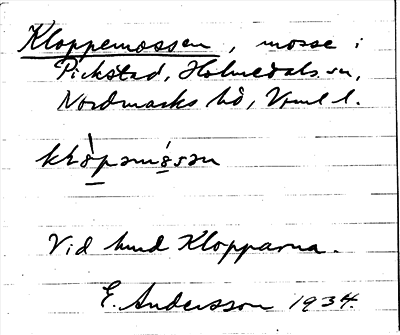 Kloppemossen, mosse i
Pickstad, Holmedals sn,
Nordmarks hd, Vrml l.
klòpəmósən
Vid hmd Klopparna.
E. Andersson 1934.